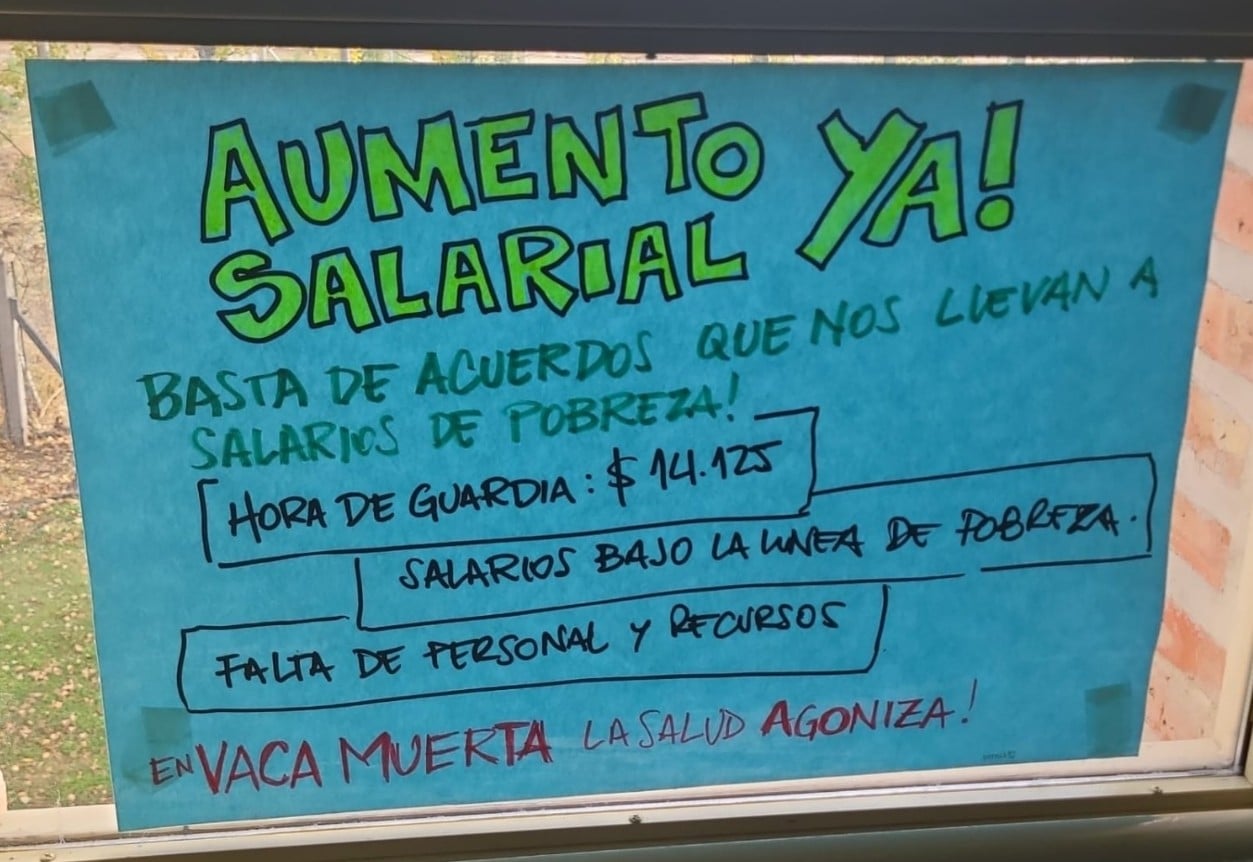 AUMENTO YA!
SALARIAL
BASTA DE ACUERDOS QUE NOS LLEVAN A
SALARIOS DE POBREZA!
HORA DE GUARDIA: $ 14.125
SALARIOS BAJO LA LINEA DE POBREZA.
FALTA DE PERSONAL Y RECURSOS
EN VACA MUERTA LA SALUD AGONIZA!